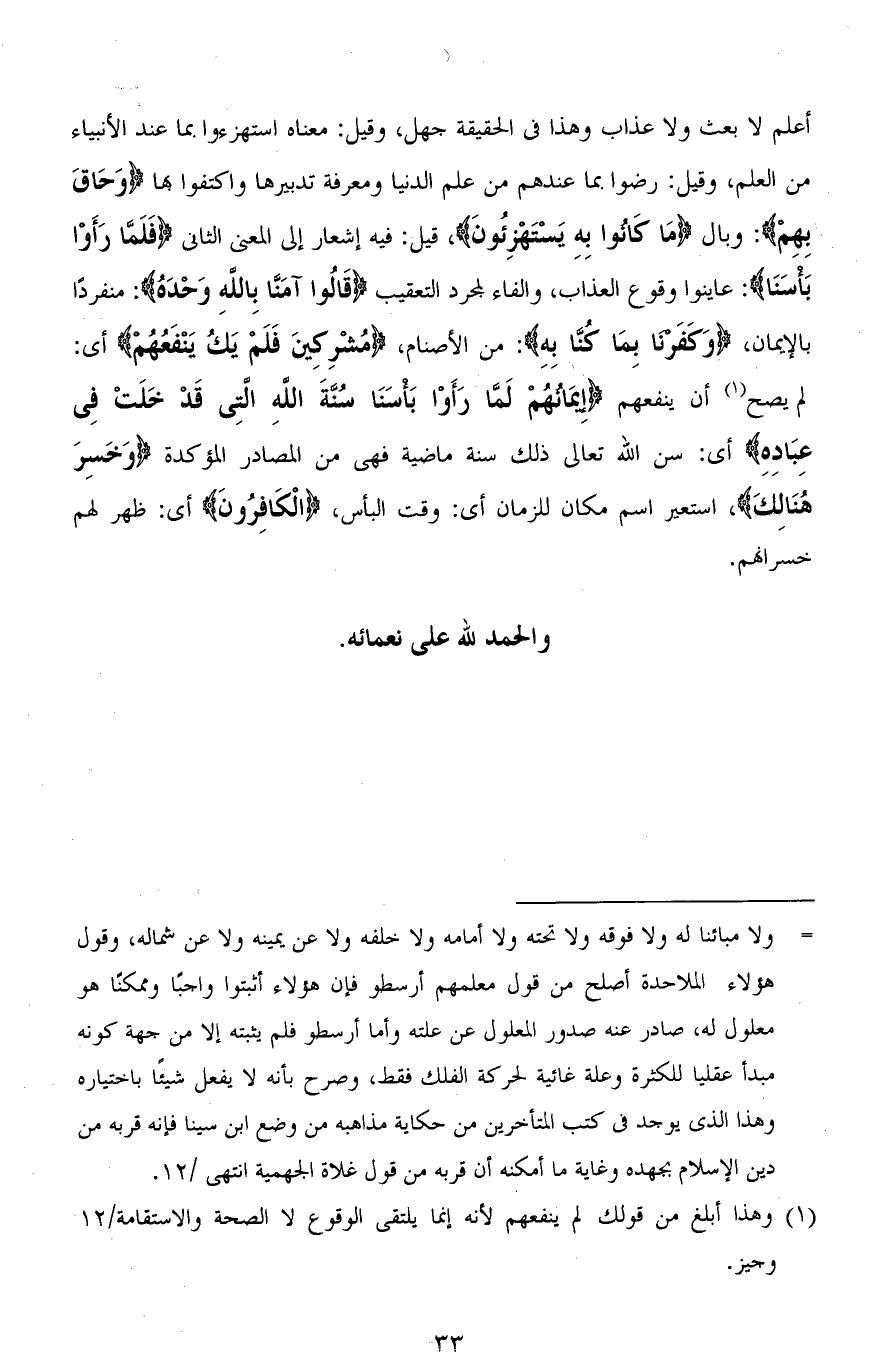 أعلم لا بعث ولا عذاب وهذا فى الحقيقة جهل، وقيل: معناه استهزءوا بما عند الأنبياء
من العلم، وقيل: رضوا بما عندهم من علم الدنيا ومعرفة تدبيرها واكتفوا بها ﴿وَحَاقَ
بِهِمْ﴾: وبال ﴿مَا كَانُوا بِهِ يَسْتَهْزِئُونَ﴾، قيل: فيه إشعار إلى المعنى الثانى ﴿فَلَمَّا رَأَوْا
بَأْسَنَا﴾: عاينوا وقوع العذاب، والفاء لمجرد التعقيب ﴿قَالُوا آمَنَّا بِاللَّهِ وَحْدَهُ﴾: منفردًا
بالإيمان، ﴿وَكَفَرْنَا بِمَا كُنَّا بِهِ﴾: من الأصنام، ﴿مُشْرِكِينَ فَلَمْ يَكُ يَنْفَعُهُمْ﴾ أى:
لم يصح(١) أن ينفعهم ﴿إِيمَانُهُمْ لَمَّا رَأَوْا بَأْسَنَا سُنَّةَ اللَّهِ الَّتِى قَدْ خَلَتْ فِى
عِبَادِهِ﴾ أى: سن الله تعالى ذلك سنة ماضية فهى من المصادر المؤكدة ﴿وَخَسِرَ
هُنَالِكَ﴾، استعير اسم مكان للزمان أى: وقت البأس، ﴿الْكَافِرُونَ﴾ أى: ظهر لهم
خسرانهم.
والحمد لله على نعمائه.
= ولا مبائنا له ولا فوقه ولا تحته ولا أمامه ولا خلفه ولا عن يمينه ولا عن شماله، وقول
هؤلاء الملاحدة أصلح من قول معلمهم أرسطو فإن هؤلاء أثبتوا واحبًا وممكنًا هو
معلول له، صادر عنه صدور المعلول عن علته وأما أرسطو فلم يثبته إلا من جهة كونه
مبدأ عقليا للكثرة وعلة غائية لحركة الفلك فقط، وصرح بأنه لا يفعل شيئًا باختياره
وهذا الذى يوجد فى كتب المتأخرين من حكاية مذاهبه من وضع ابن سينا فإنه قربه من
دين الإسلام بجهده وغاية ما أمكنه أن قربه من قول غلاة الجهمية انتهى /١٢.
(١) وهذا أبلغ من قولك لم ينفعهم لأنه إنما يلتقى الوقوع لا الصحة والاستقامة/١٢
وحيز.
٣٣